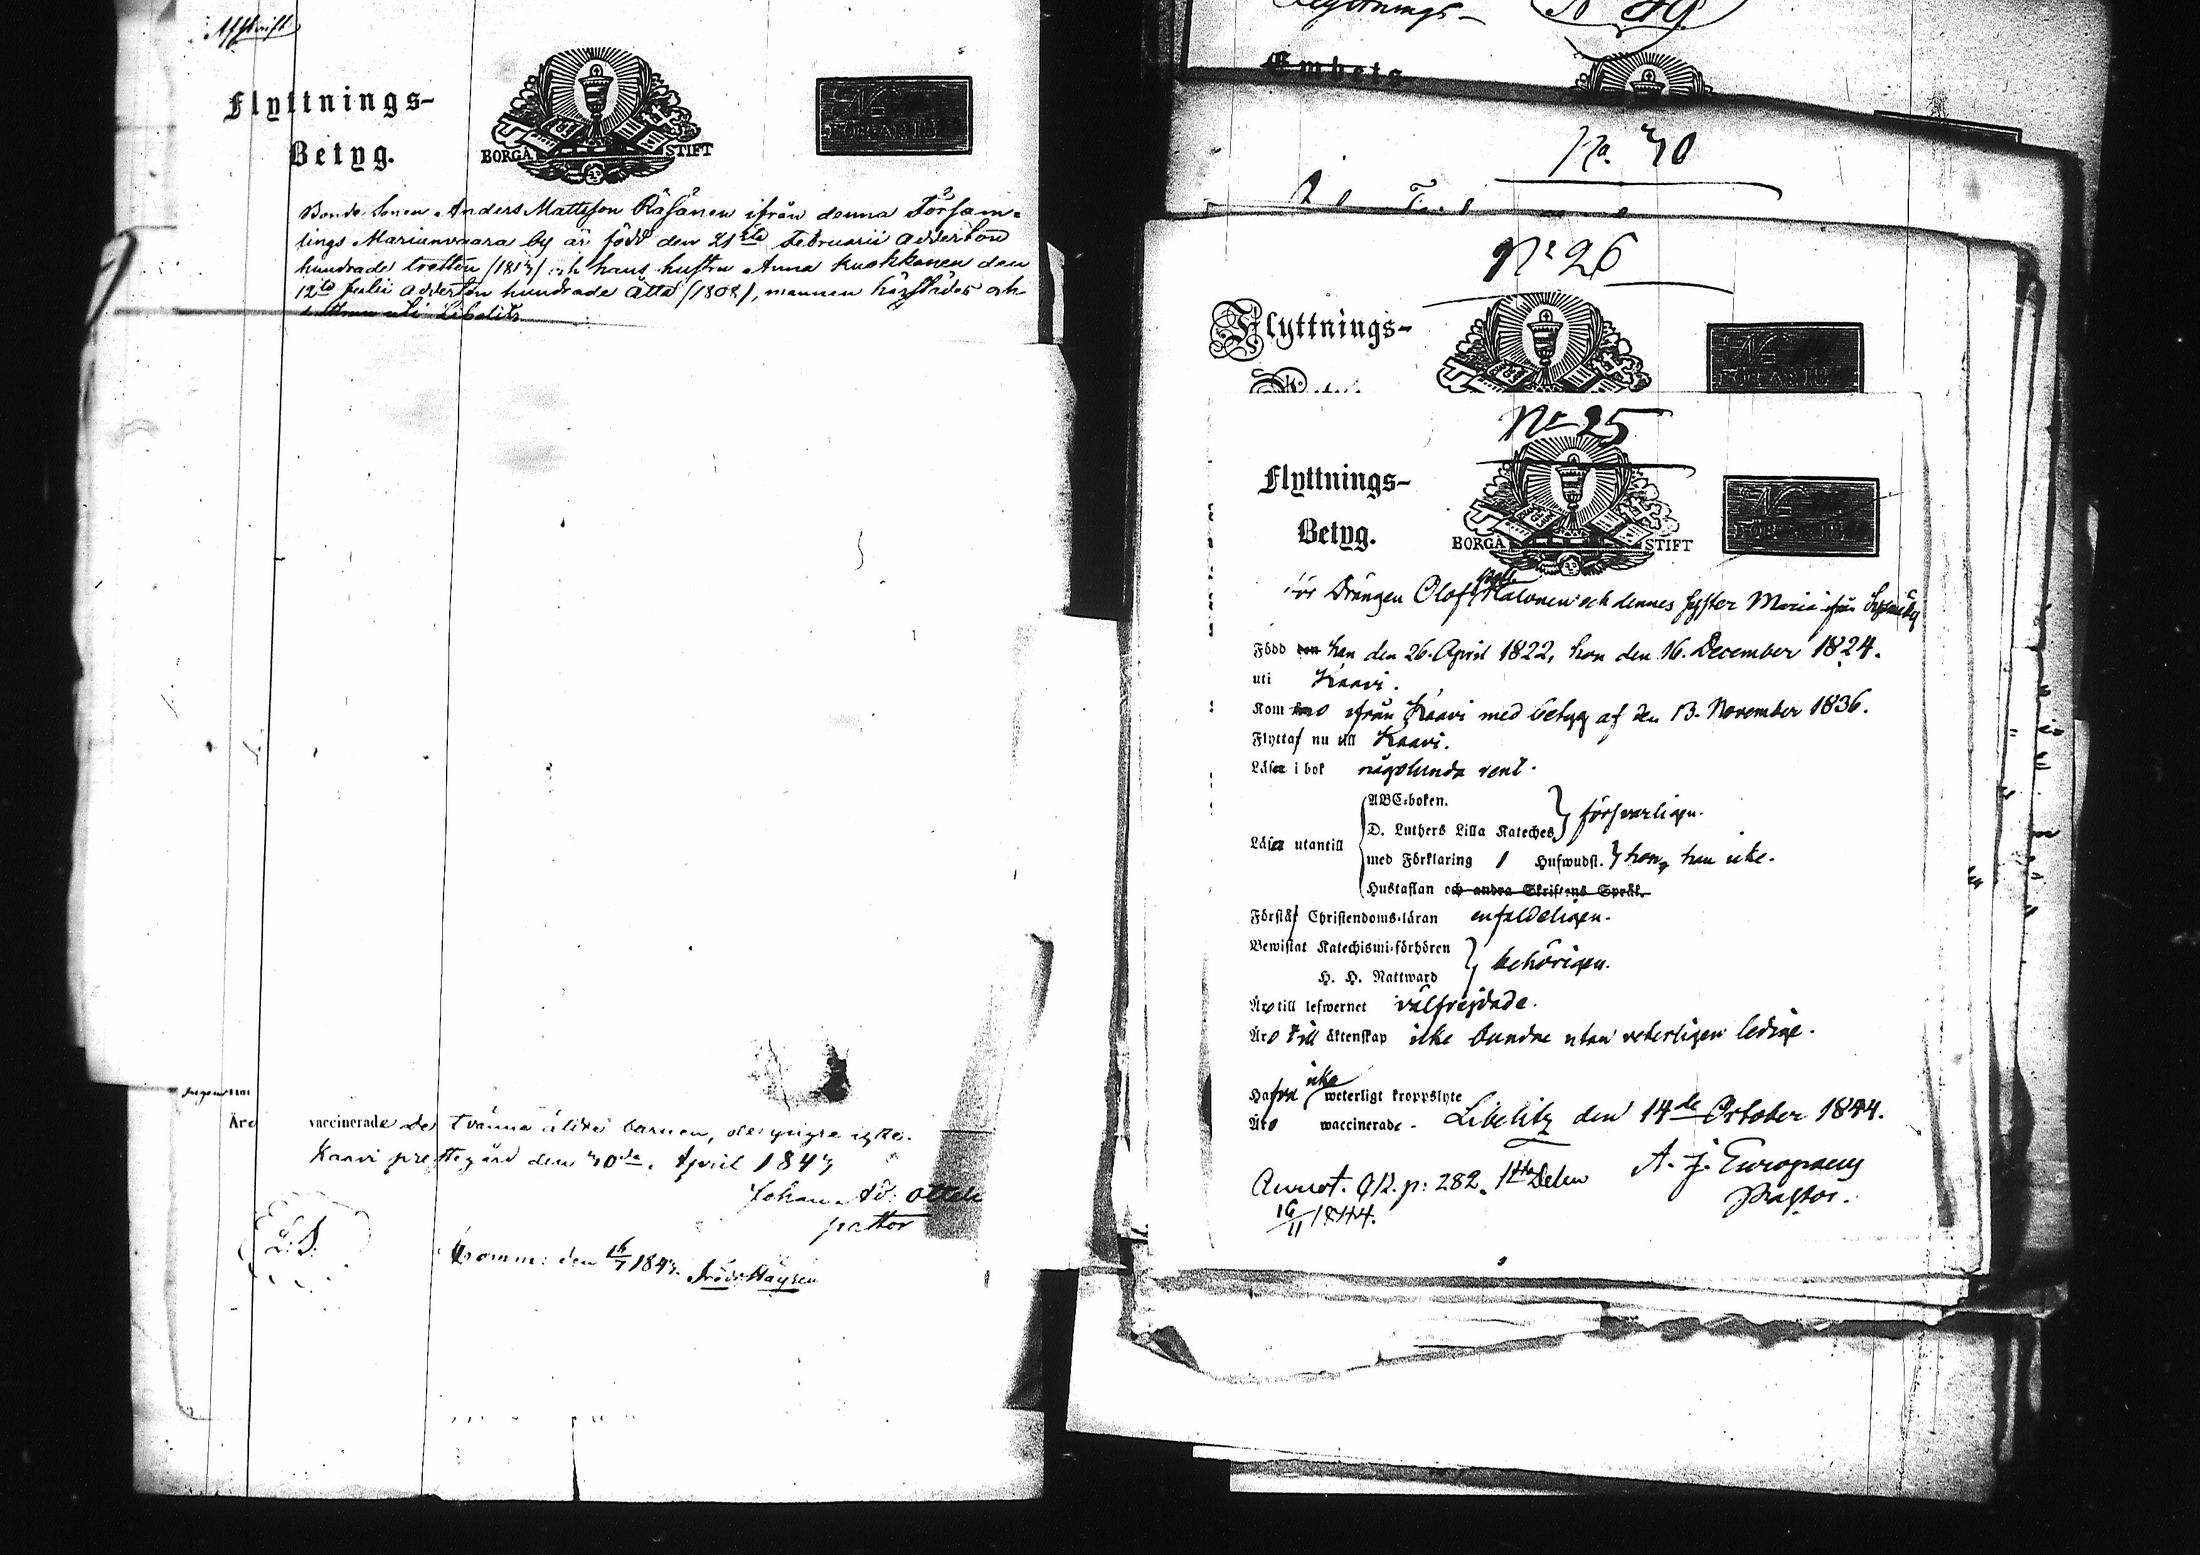 Afskrift
Flyttnings-
Betyg.
BORGÅ STIFT
N
FÖR ÅR 18
Bonde Sonen Anders Mattsson Räsänen ifrån denna Försam-
lings Marianvaara by är född den 21sta Februarii aderton
hundrade tretton (1813) och hans hustru Anna Kuokkanen den
12te Julii aderton hundrade åtta (1808), mannen härstädes och
uti Libelits
Äro vaccinerade de tvänne äldre barnen, de yngre icke.
Kaavi prestegård den 30de April 1843
Johan Ad.
pastor
L.S.
den 1843.
Flyttnings-
Embets
No. 30
No 26
Flyttnings-
N
FÖR ÅR 18
No 25
Flyttnings-
Betyg.
BORGÅ STIFT
N
FÖR ÅR 18
för Drängen Olof Halonen och dennes syster Maria ifrån
Född den han den 26. April 1822, hon den 16. December 1824.
uti Kaavi.
Kommo ifrån Kaavi med betyg af den 13. November 1836.
Flytta nu till Kaavi.
Läsa i bok någolunda rent.
ABC-boken.
D. Luthers Lilla Kateches försvarligen.
Läsa utantill
med Förklaring Hufwudst. hon, han icke.
Hustaflan och andra Skriftens Språk.
Förstå Christendoms-läran enfaldeligen.
Bewistat Katechismi-förhören
H. H. Nattward behörigen.
Äro till lefwernet välfrejdade.
Äro till äktenskap icke bundne utan veterligen ledige.
Hafva icke weterligt kroppslyte
Äro waccinerade. Libelitz den 14de October 1844.
A. J. Europaeus
Pastor.
Annot. p: 282. 1sta Delen
16/11 1844.